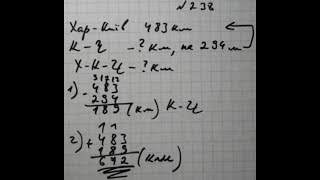 №238
Хар-Київ 483км
К-Ч -? км, на 294 м
Х-К-Ч -? км
3 17 13
1) - 483
294
189 (км) К-Ч
1 1
2) + 483
189
672 (км)